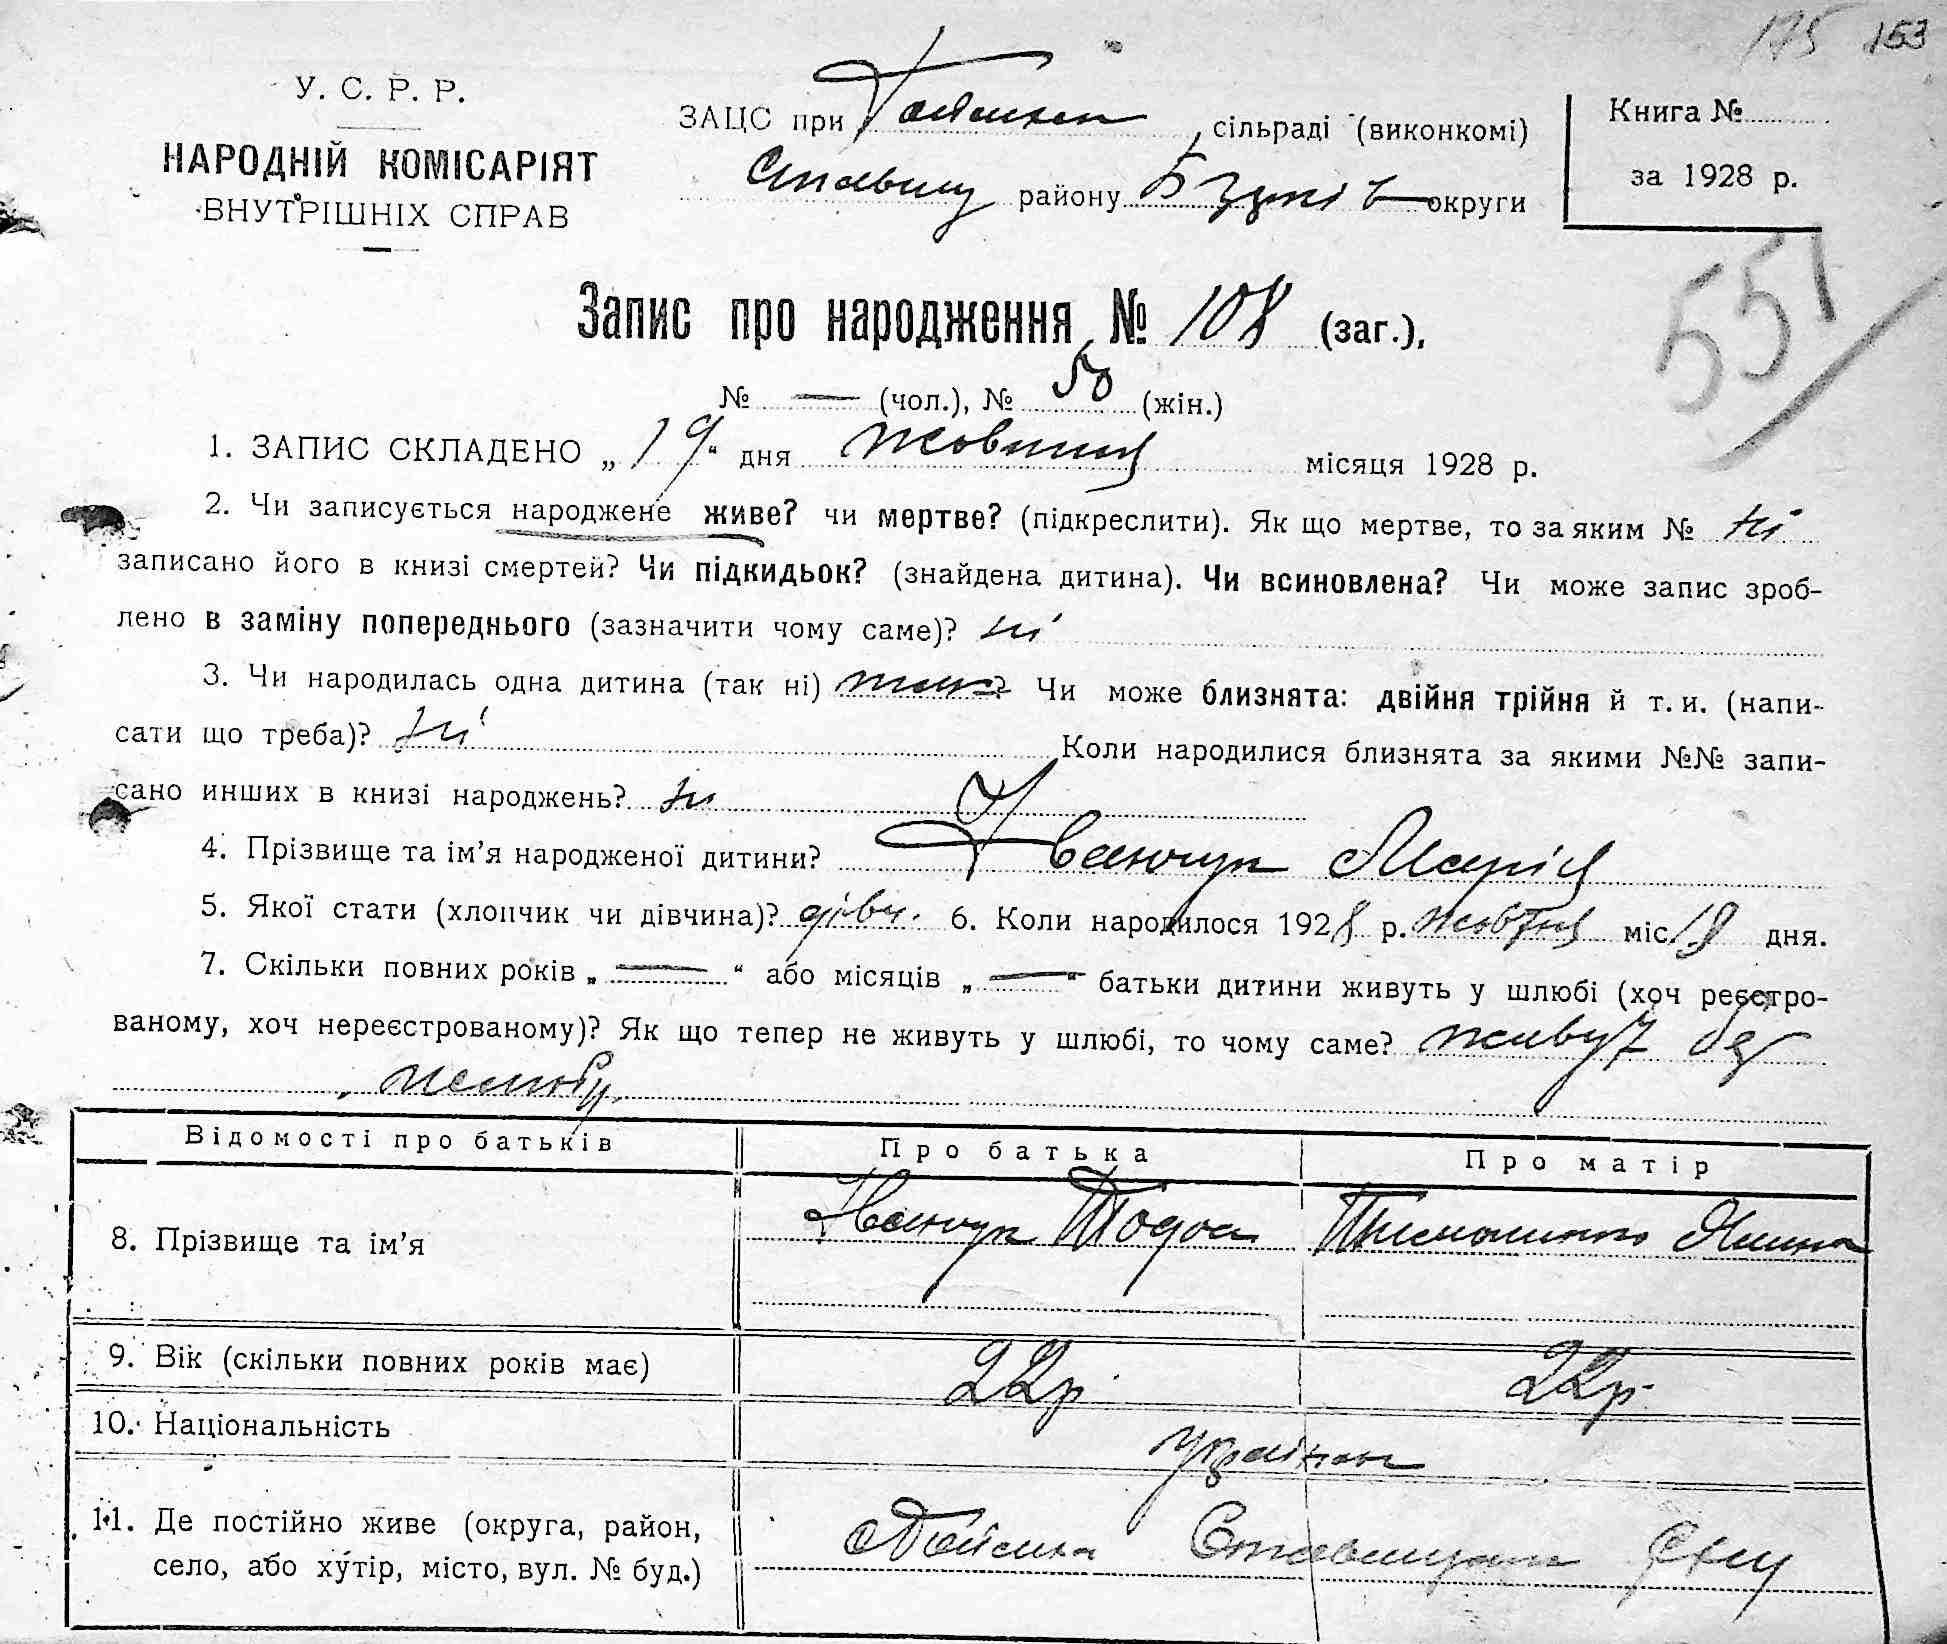 175 153
У. С. Р. Р.
НАРОДНІЙ КОМІСАРІЯТ
ВНУТРІШНІХ СПРАВ
ЗАЦС при сільраді (виконкомі)
району округи
Книга №
за 1928 р.
551
Запис про народження № 108 (заг.),
№ — (чол.), № 50 (жін.)
1. ЗАПИС СКЛАДЕНО „19“ дня жовтня місяця 1928 р.
2. Чи записується народжене живе? чи мертве? (підкреслити). Як що мертве, то за яким № ні
записано його в книзі смертей? Чи підкидьок? (знайдена дитина). Чи всиновлена? Чи може запис зроб-
лено в заміну попереднього (зазначити чому саме)? ні
3. Чи народилась одна дитина (так ні) так? Чи може близнята: двійня трійня й т. и. (напи-
сати що треба)? ні Коли народилися близнята за якими №№ запи-
сано инших в книзі народжень? ні
4. Прізвище та ім’я народженої дитини? Іванчук Марія
5. Якої стати (хлопчик чи дівчина)? дівч. 6. Коли народилося 1928 р. жовтня міс. 18 дня.
7. Скільки повних років „—“ або місяців „—“ батьки дитини живуть у шлюбі (хоч реєстро-
ваному, хоч нереєстрованому)? Як що тепер не живуть у шлюбі, то чому саме? живут без
шлюбу
Відомості про батьків Про батька Про матір
8. Прізвище та ім’я Іванчук Тодос
9. Вік (скільки повних років має) 22 р. 22 р.
10. Національність
11. Де постійно живе (округа, район,
село, або хутір, місто, вул. № буд.)